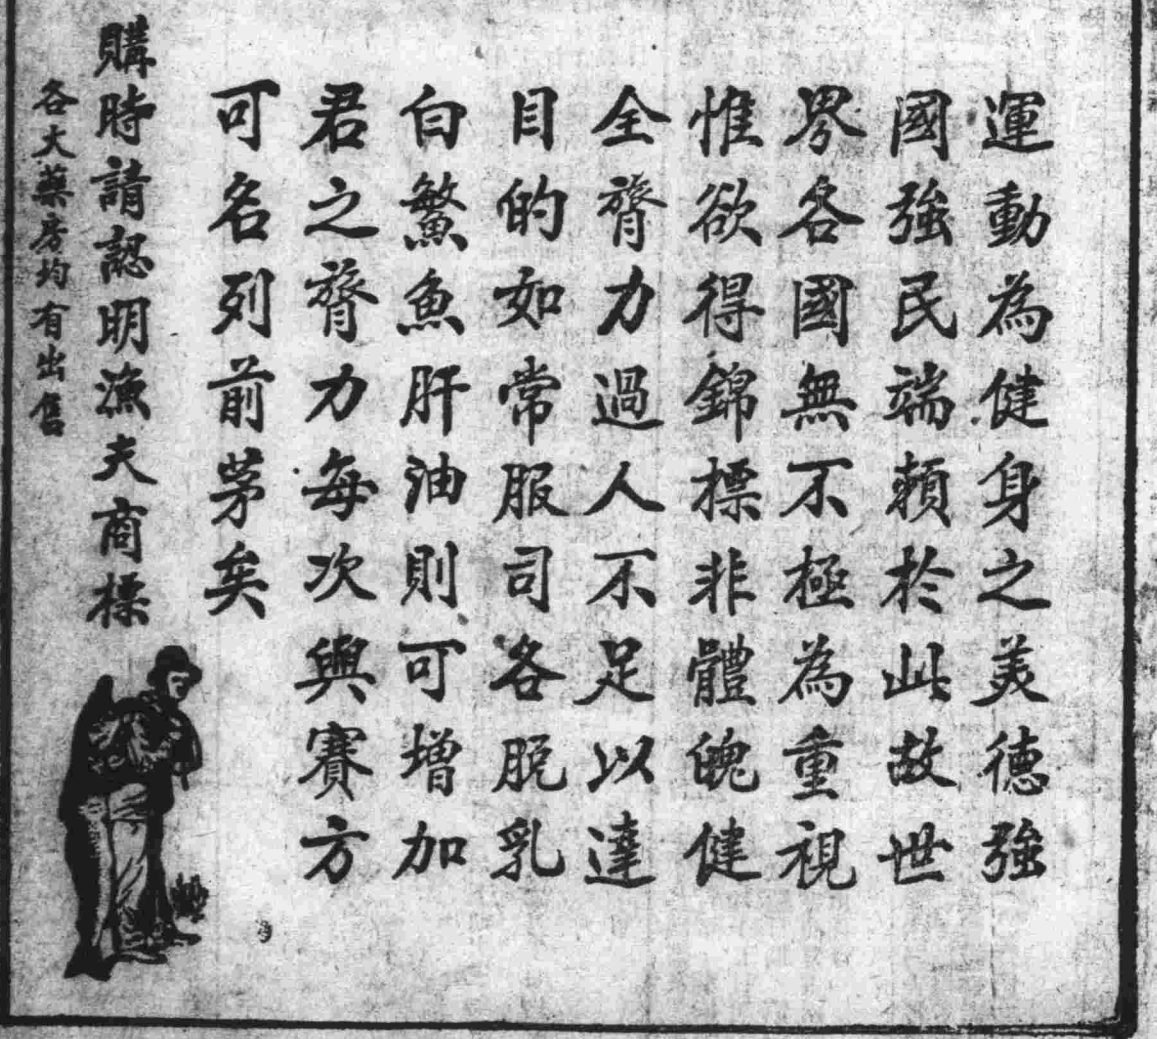 運動為健身之美德強
國強民端賴於此故世
界各國無不極為重視
惟欲得錦標非體魄健
全膂力過人不足以達
目的如常服司各脫乳
白鰵魚肝油則可增加
君之膂力每次與賽方
可名列前茅矣
購時請認明漁夫商標
各大藥房均有出售